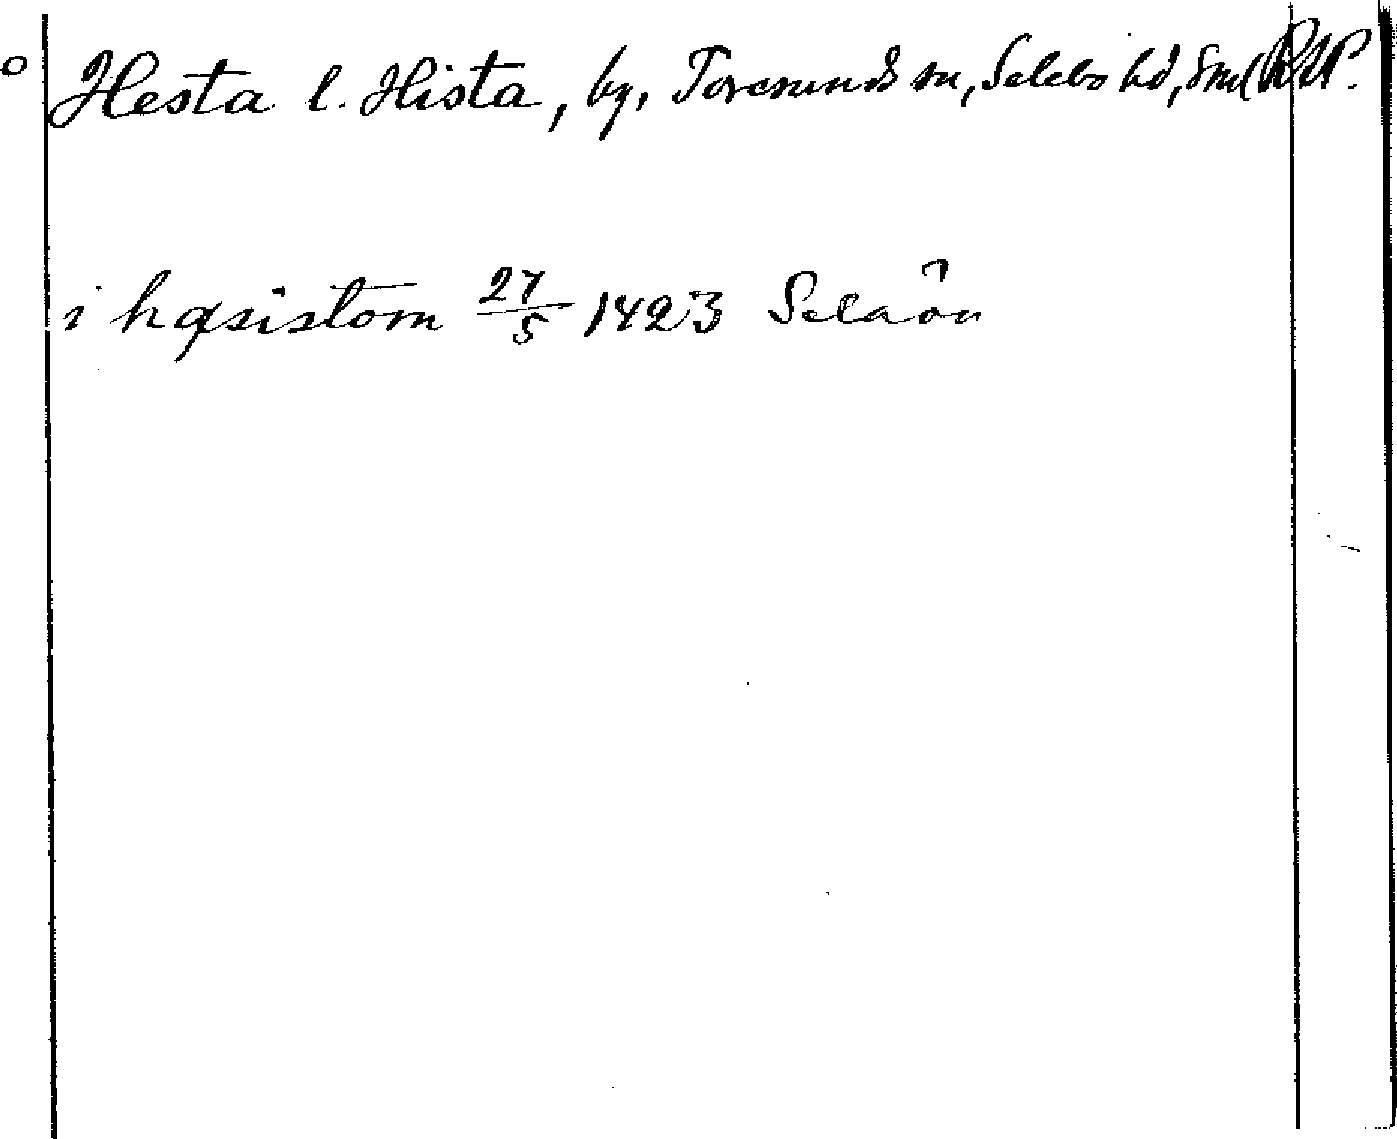 o Hesta l. Hista, by, Toresunds sn, Selebo hd, Sml RAP.
i hæsistom 27/5 1423 Selaön